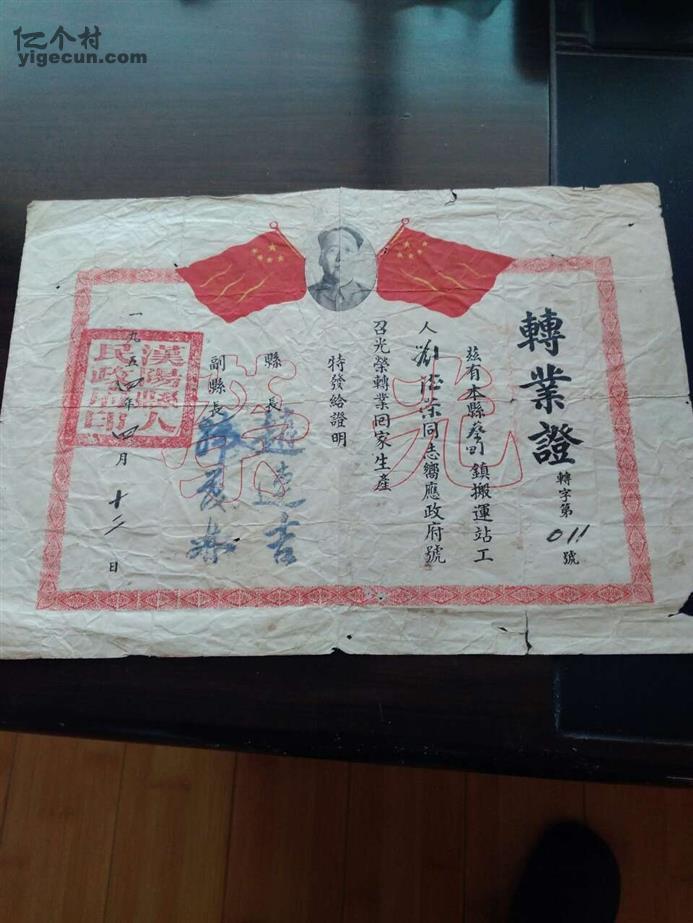 亿个村
yigecun.com
轉業證
轉字第011號
茲有本縣蔡甸鎮搬運站工
人 同志嚮應政府號
召光榮轉業回家生產
特發給證明
縣長 趙連吉
副縣長
一九五 年四月十二日
漢陽縣人民政府印
光榮